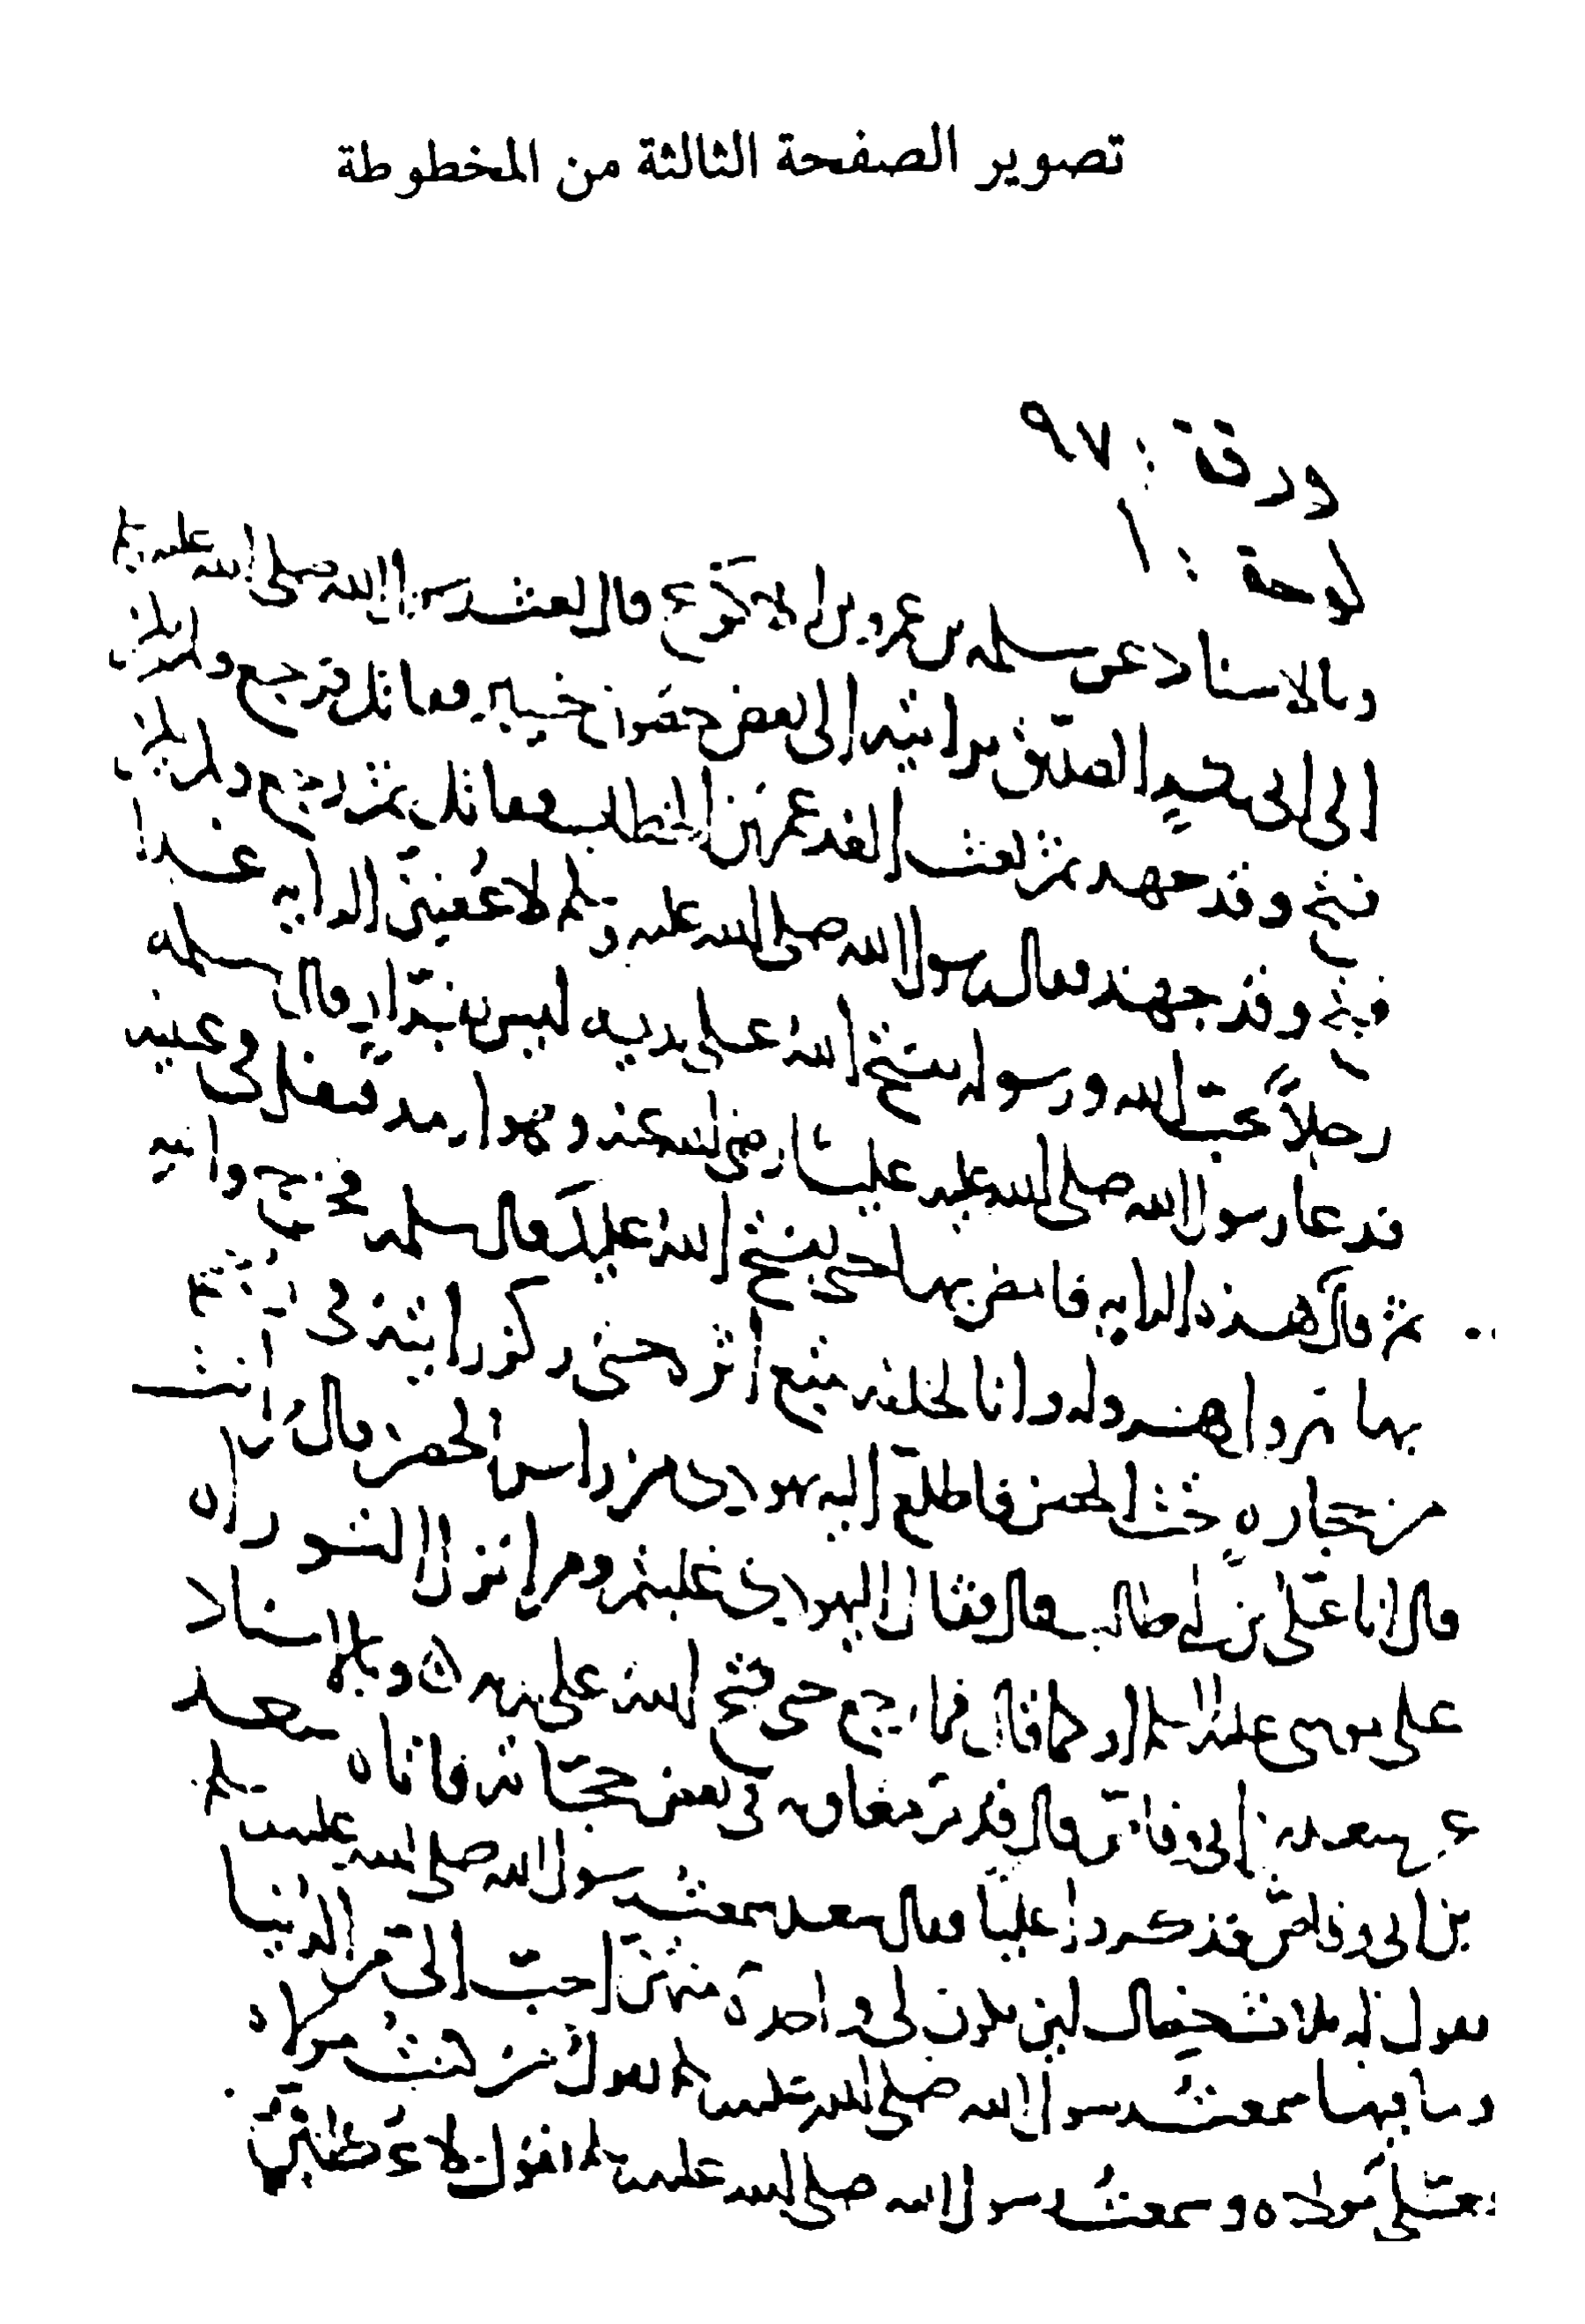 تصوير الصفحة الثالثة من المخطوطة
ورقة : ٩٧
لوحة : ١
وبالاسناد عن سلمه بن عمرو بن الاكوع قال بعث رسول الله صلى الله عليه وسلم
الى ابى بكر الصديق برايته الى بعض حصون خيبر فقاتل فرجع ولم يكن
فتح وقد جهد ثم بعث الغد عمر بن الخطاب فقاتل ثم رجع ولم يكن
فتح وقد جهد فقال رسول الله صلى الله عليه وسلم لاعطين الرايه غدا
رجلا يحب الله ورسوله يفتح الله على يديه ليس بفرار قال سلمه
فدعا رسول الله صلى الله عليه عليا رضى الله عنه وهو ارمد فتفل فى عينيه
ثم قال هذه الرايه فامض بها حتى يفتح الله عليك قال سلمه فخرج والله
بها يهرول هروله وانا لخلفه نتبع اثره حتى ركز رايته فى
من حجاره تحت الحصن فاطلع اليه يهودى من راس الحصن قال من انت
قال انا على بن ابى طالب قال فقال اليهودى غلبتم وما انزل التوراه
على موسى عليه السلم او كما قال فما رجع حتى فتح الله على يديه ٥ وبالاسناد
عن سعد بن ابى وقاص قال قدم معاويه فى بعض حجاته فاتاه سعد
بن ابى وقاص فذكروا عليا فقال سعد سمعت رسول الله صلى الله عليه وسلم
يقول له ثلاث خصال لئن يكون لى واحدة منهن احب الى من الدنيا
وما فيها سمعت رسول الله صلى الله عليه وسلم يقول من كنت مولاه
فعلى مولاه وسمعت رسول الله صلى الله عليه وسلم يقول لاعطين